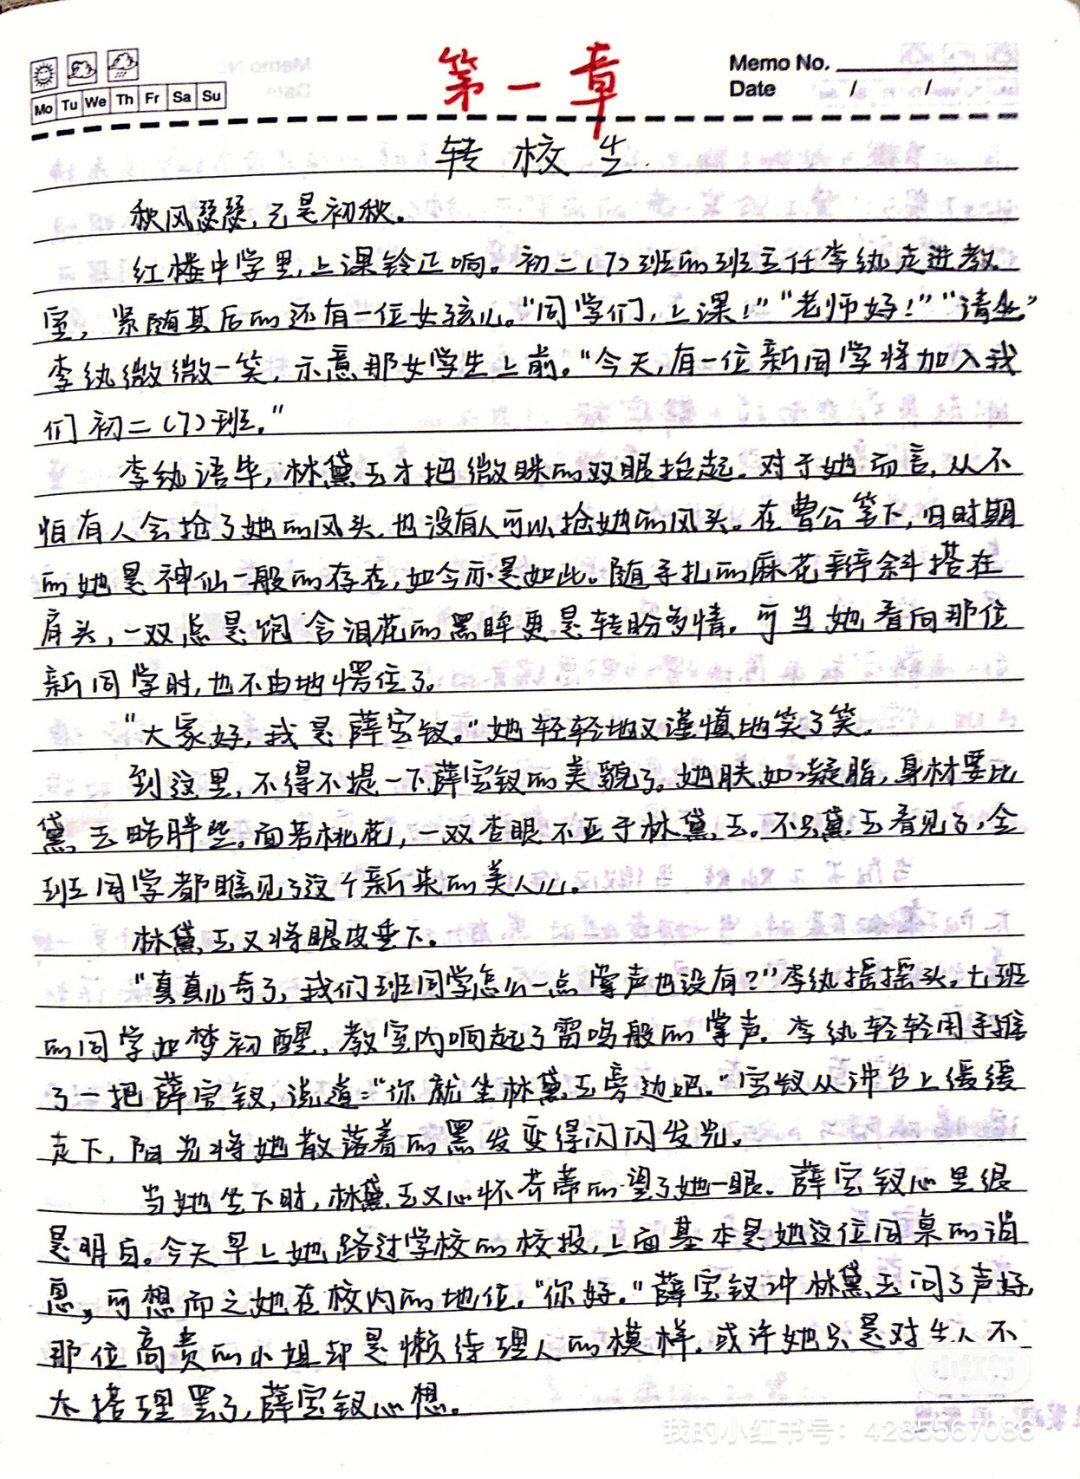 第一章
Memo No.
Date / /
Mo Tu We Th Fr Sa Su
转校生
秋风瑟瑟,已是初秋。
红楼中学里,上课铃正响。初二(7)班的班主任李纨走进教
室,紧随其后的还有一位女孩儿。"同学们,上课!""老师好!""请坐。"
李纨微微一笑,示意那女学生上前。"今天,有一位新同学将加入我
们初二(7)班。"
李纨语毕,林黛玉才把微眯的双眼抬起。对于她而言,从不
怕有人会抢了她的风头,也没有人可以抢她的风头。在曹公笔下,旧时期
的她是神仙一般的存在,如今亦是如此。随手扎的麻花辫斜搭在
肩头,一双总是饱含泪花的黑眸更是转盼多情。可当她看向那位
新同学时,也不由地愣住了。
"大家好,我是薛宝钗。"她轻轻地又谨慎地笑了笑。
到这里,不得不提一下薛宝钗的美貌了。她肤如凝脂,身材要比
黛玉略胖些。面若桃花,一双杏眼不亚于林黛玉。不只黛玉看见了,全
班同学都瞧见了这个新来的美人儿。
林黛玉又将眼皮垂下。
"真真儿奇了,我们班同学怎么一点掌声也没有?"李纨摇摇头,七班
的同学如梦初醒,教室内响起了雷鸣般的掌声。李纨轻轻用手推
了一把薛宝钗,说道:"你就坐林黛玉旁边吧。"宝钗从讲台上缓缓
走下,阳光将她散落着的黑发变得闪闪发光。
当她坐下时,林黛玉又心怀芥蒂的望了她一眼。薛宝钗心里很
是明白。今天早上她路过学校的校报,上面基本是她这位同桌的消
息,可想而之她在校内的地位。"你好。"薛宝钗冲林黛玉问了声好,
那位高贵的小姐却是懒待理人的模样。或许她只是对生人不
太搭理罢了,薛宝钗心想。
小红书
我的小红书号:4285567086